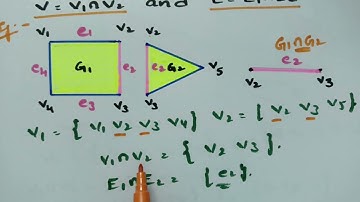 V = V₁∩V₂ and
Eg:-
v₁ e₁ v₂ v₂ G₁∩G₂
e₄ G₁ e₂ e₂ G₂ v₅ e₂
v₂ v₃
v₄ e₃ v₃ v₃
V₁ = { v₁ v₂ v₃ v₄} V₂ = { v₂ v₃ v₅
V₁∩V₂ = { v₂ v₃ }.
E₁∩E₂ = {e₂}.